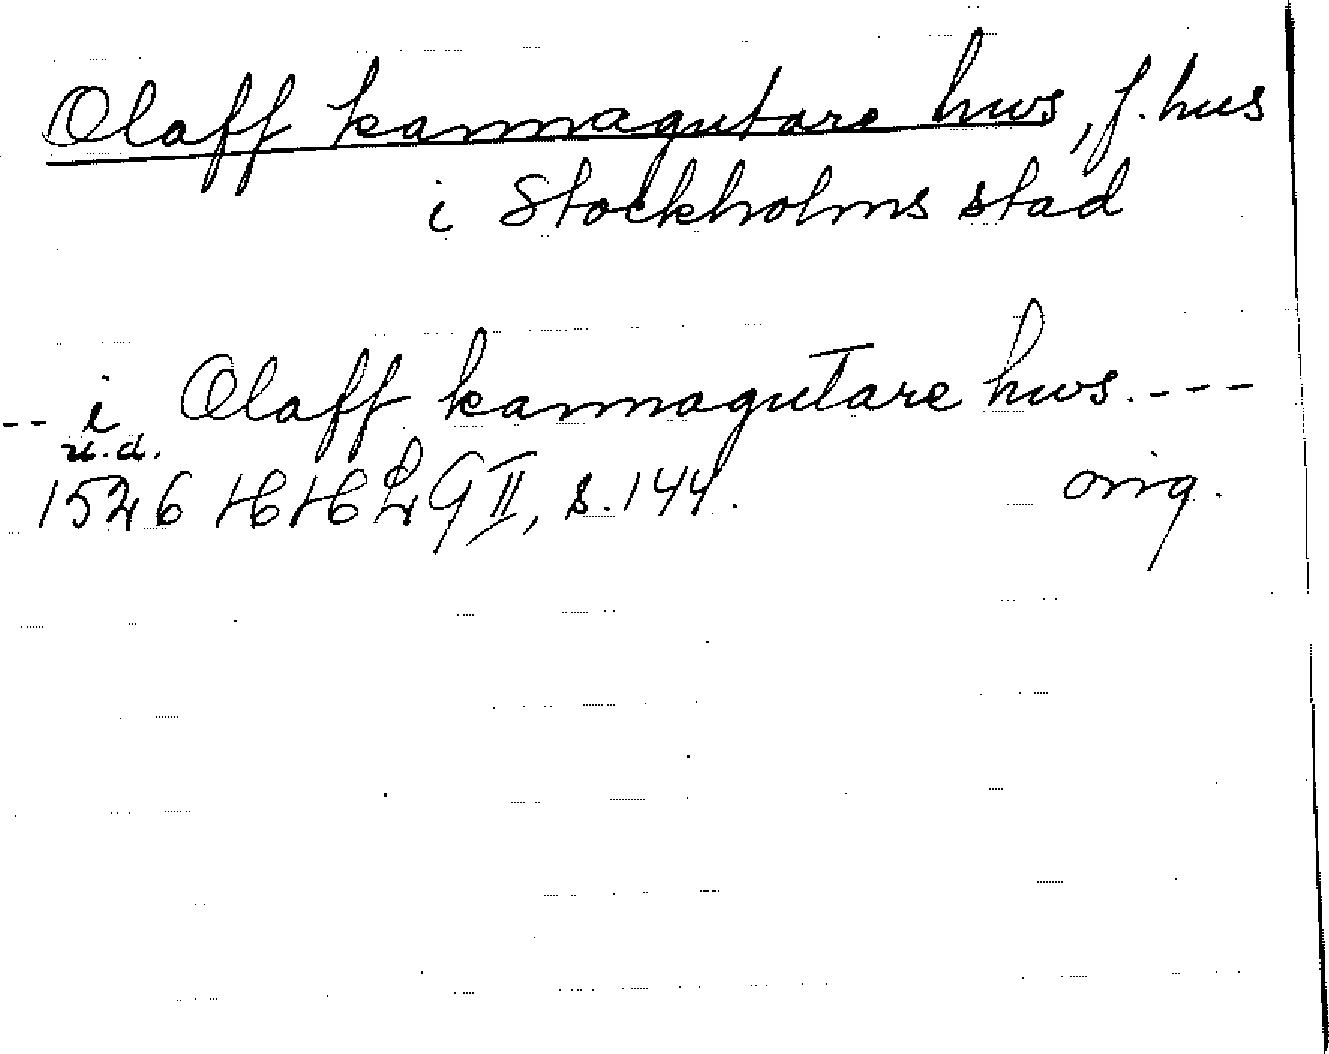 Olaff kannagutare hws, f. hus
i Stockholms stad
-- i Olaff kannagutare hws. ---
u.d.
1526 HH Ä G II, s. 144. orig.